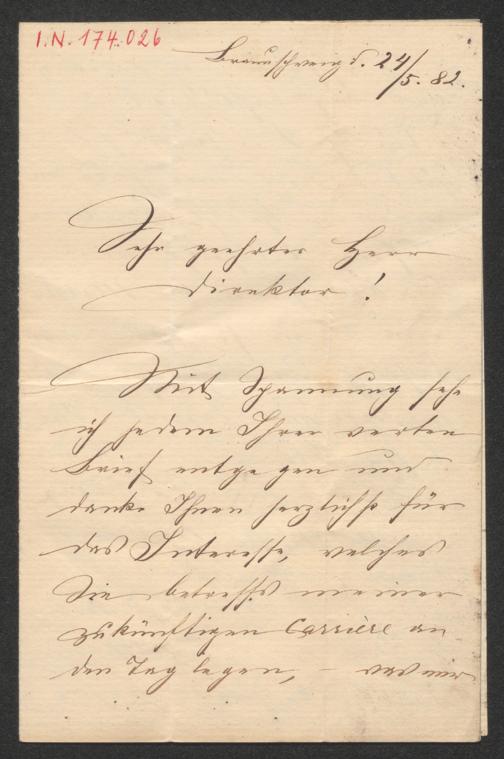 I.N. 174.026
Braunschweig d. 24/5. 82.
Sehr geehrter Herr
Direktor!
Mit Spannung sehe
ich jedem Ihrer werten
Brief entgegen und
danke Ihnen herzlichst für
das Interesse, welches
Sie betreffs meiner
zukünftigen Carrière an
den Tag legen, – was mir